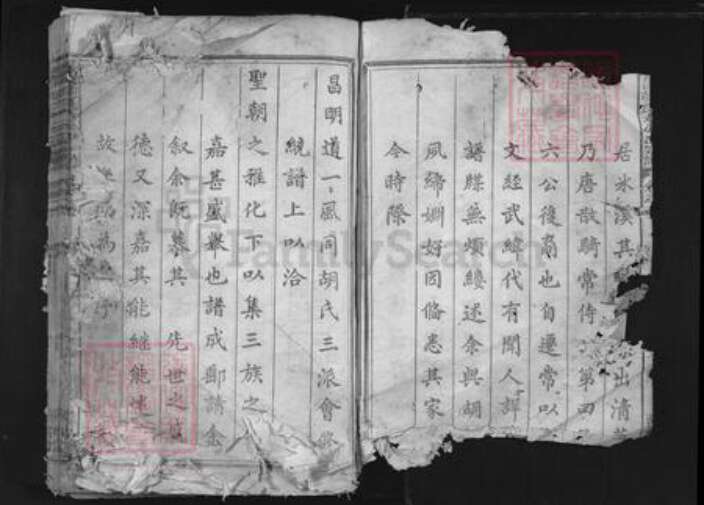 居冰溪其 出清
乃唐散騎常侍 第四
六公後裔也自遷常以
文經武緯代有聞人詳
譜牒無煩縷述余與胡
夙締姻好固備悉其家
今時際
昌明道一風同胡氏三派會修
統譜上以洽
聖朝之雅化下以集三族之
嘉甚盛舉也譜成郵請余
叙余既慕其 先世之
德又深嘉其能繼能述
故 為 序
FamilySearch